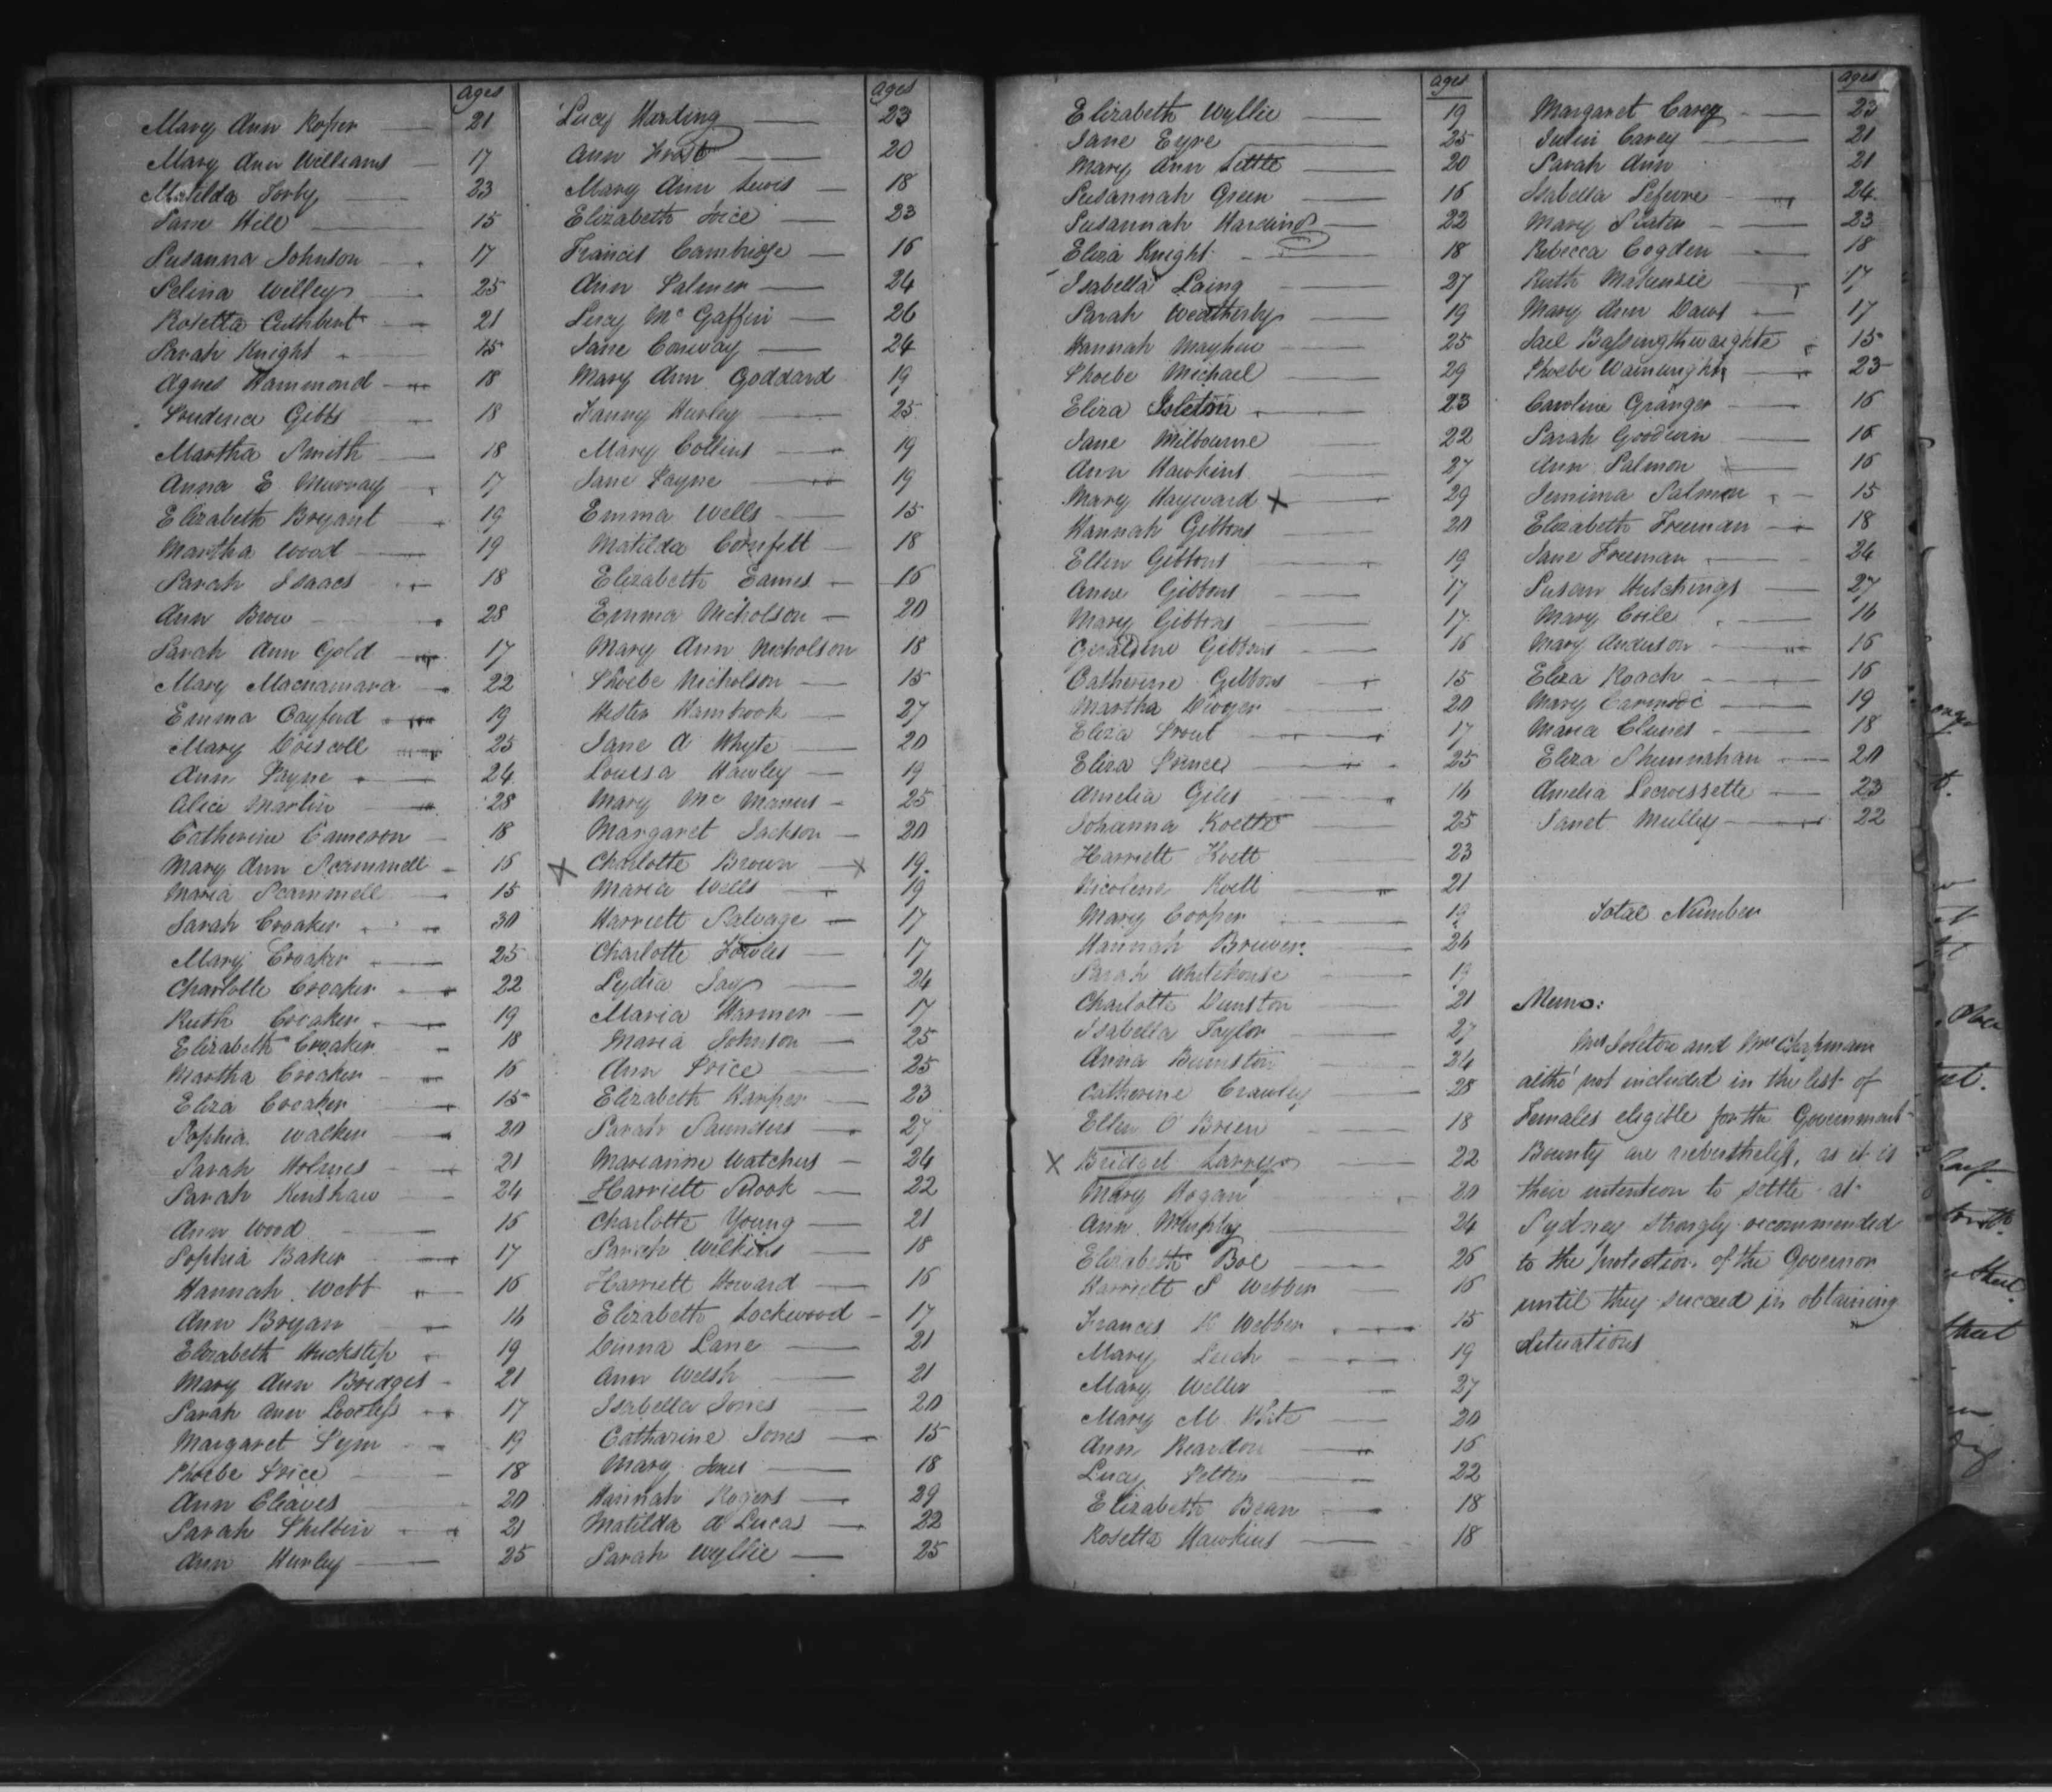 ages
Mary Ann Roper 21
Mary Ann Williams 17
Matilda Sorby 23
Jane Hill 15
Susanna Johnson 17
Selina Willey 25
Rosetta Cuthbert 21
Sarah Knight 15
Agnes Hammond 18
Prudence Gibbs 18
Martha Smith 18
Anna E Murray 17
Elizabeth Bryant 19
Martha Wood 19
Sarah Isaacs 18
Ann Brow 28
Sarah Ann Gold 17
Mary Macnamara 22
Emma Cayford 19
Mary Driscoll 25
Ann Payne 24
Alice Martin 28
Catherine Cameron 18
Mary Ann Scammell 16
Maria Scammell 15
Sarah Croaker 30
Mary Croaker 25
Charlotte Croaker 22
Ruth Croaker 19
Elizabeth Croaker 18
Martha Croaker 16
Eliza Croaker 15
Sophia Walker 20
Sarah Holmes 21
Sarah Kershaw 24
Ann Wood 15
Sophia Baker 17
Hannah Webb 16
Ann Bryan 16
Elizabeth Huckstep 19
Mary Ann Bridges 21
Sarah Ann Loveless 17
Margaret Sym 19
Phoebe Price 18
Ann Cleaves 20
Sarah Philbin 21
Ann Hurley 25
ages
Lucy Harding 23
Ann Frost 20
Mary Ann Lewis 18
Elizabeth Joice 23
Francis Cambridge 16
Ann Palmer 24
Lucy Mc Gaffin 26
Jane Conway 24
Mary Ann Goddard 19
Fanny Hurley 25
Mary Collins 19
Jane Payne 19
Emma Wells 15
Matilda Cornfelt 18
Elizabeth Eames 16
Emma Nicholson 20
Mary Ann Nicholson 18
Phoebe Nicholson 15
Hester Hambrook 27
Jane A Whyte 20
Louisa Hawley 19
Mary Mc Manus 25
Margaret Jackson 20
X Charlotte Brown X 19
Maria Wells 19
Harriett Salvage 17
Charlotte Fowles 17
Lydia Jay 24
Maria Harmer 17
Maria Johnson 25
Ann Price 25
Elizabeth Harper 23
Sarah Saunders 27
Marianne Watchus 24
Harriett Slook 22
Charlotte Young 21
Sarah Wilkins 18
Harriett Howard 16
Elizabeth Lockwood 17
Dinna Lane 21
Ann Welsh 21
Isabella Jones 20
Catharine Jones 15
Mary Jones 18
Hannah Rogers 29
Matilda A Lucas 22
Sarah Wyllie 25
ages
Elizabeth Wyllie 19
Jane Eyre 25
Mary Ann Little 20
Susannah Green 16
Susannah Harding 22
Eliza Knight 18
Isabella Laing 27
Sarah Weatherby 19
Hannah Mayhew 25
Phoebe Michael 29
Eliza 23
Jane Milbourne 22
Ann Hawkins 27
Mary Hayward X 29
Hannah Gibbons 20
Ellen Gibbons 19
Anne Gibbons 17
Mary Gibbons 17
Geraldine Gibbons 16
Catherine Gibbons 15
Martha Dwyer 20
Eliza Prout 17
Eliza Prince 25
Amelia Giles 16
Johanna Koett 25
Harriett Koett 23
Nicolena Koett 21
Mary Cooper 19
Hannah Brewer 26
Sarah Whitehouse 19
Charlotte Dunston 21
Isabella Taylor 27
Anna Bunston 24
Catherine Crawley 28
Ellen O'Brien 18
X Bridget Larry 22
Mary Hogan 20
Ann Murphy 24
Elizabeth Boe 26
Harriett S Webber 16
Frances K Webber 15
Mary Leech 19
Mary Weller 27
Mary M White 20
Ann Reardon 16
Lucy Pelter 22
Elizabeth Bean 18
Rosetta Hawkins 18
ages
Margaret Carey 23
Julia Carey 21
Sarah Ann 21
Isabella Lefevre 24
Mary Slater 23
Rebecca Cogden 18
Ruth Makensie 17
Mary Ann Daws 17
Jael Bassingthwaighte 15
Phoebe Wainwright 23
Caroline Granger 16
Sarah Goodwin 16
Ann Salmon 16
Jemima Salmon 15
Elizabeth Freeman 18
Jane Freeman 24
Susan Hutchings 27
Mary Coile 16
Mary Anderson 16
Eliza Roach 16
Mary 19
Maria Clunes 18
Eliza Shunnahan 20
Amelia Lecroissette 23
Janet Mulley 22
Total Number
Memo:
Mrs and Mrs Chapman
altho' not included in the list of
Females eligible for the Government
Bounty are nevertheless, as it is
their intention to settle at
Sydney strongly recommended
to the protection of the Governor
until they succeed in obtaining
situations